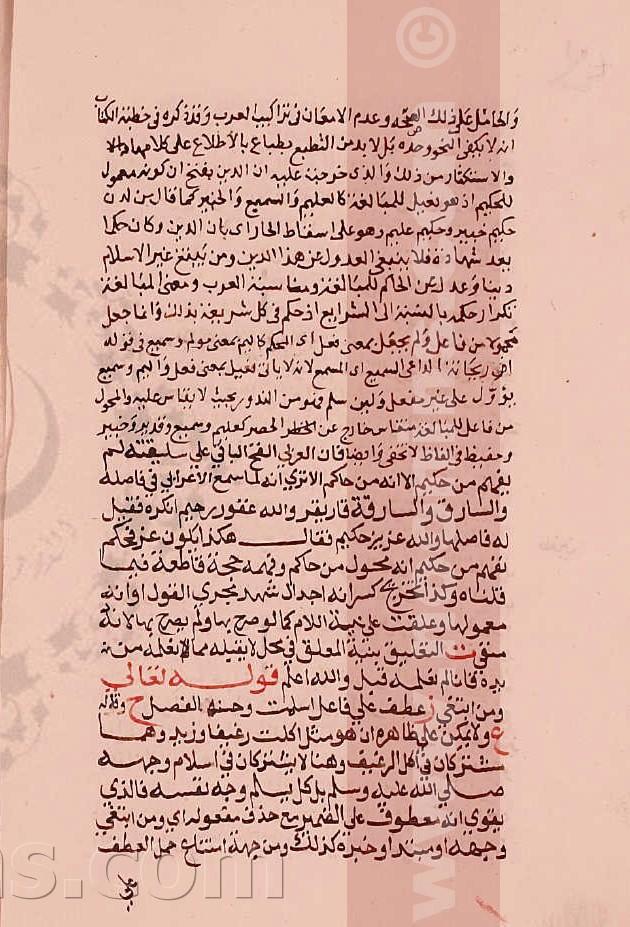 والحامل على ذلك العجمة وعدم الامعان في تراكيب العرب وقد ذكره في خطبة الكتاب
انه لا يكفي النحو وحده بل لا بد من التطبع بطباع بالاطلاع على كلامها
والاستكثار من ذلك والذي خرجت عليه ان الدين بفتح ان كونه معمول
للحكيم اذ هو فعيل للمبالغة كالعليم والسميع والخبير كما قال من لدن
حكيم خبير وحكيم عليم وهو على اسقاط الجار اي بان الدين وكان حكما
بعد شهادة فلا ينبغي العدول عن هذا الدين ومن يبتغ غير الاسلام
دينا وعدل عن الحاكم للمبالغة ومناسبة العرب ومعنى المبالغة
تكرار حكمه بالنسبة الى الشرايع اذ حكم في كل شريعة بذلك وانما جعل
محولا من فاعل ولم يجعل بمعنى مفعل اي المحكم كاليم بمعنى مولم وسميع في قوله
امن ريحانة الداعي السميع اي المسمع لانه لا ياتي فعيل بمعنى مفعل واليم وسميع
يؤول على غير مفعل ولين سلم فهو من الندور بحيث لا يقاس عليه والمحول
من فاعل للمبالغة منقاس خارج عن الحصر كعليم وسميع وقدير وخبير
وحفيظ في الفاظ لا تحصى وايضا فان العربي القح الباقي على سليقته لم
يفهم من حكيم الا انه من حاكم الا تري انه لما سمع الاعرابي في فاصلة
والسارق والسارقة قاريقر والله غفور رحيم انكره فقيل
له فاصلها والله عزيز حكيم فقال هكذا يكون عز فحكم
ففهم من حكيم انه محول من حاكم وفهمه حجة قاطعة فيما
قلناه وكذا تخريج كسر انه اجدال شهد مجري القول او انه
معمولها وعلقت على نية اللام كما لو صرح بها ولم يصح بها لانه
منفيت التعليق بنية المعلق في محل لا يقبله مما لا نعلمه من
يده فانا لم نعلمه قبل والله اعلم قوله تعالي
ومن اتبعني ز عطف علي فاعل اسلمت وحسنه الفصل ح وقاله
ع ولا يمكن علي ظاهره ان هو مثل اكلت رغيفا وزيد وهما
مشتركان في اكل الرغيف وهنا لا يشتركان في اسلام وجهه
صلي الله عليه وسلم بل كل يسلم وجه نفسه فالذي
يقوي انه معطوف على الضمير مع حذف مفعوله اي ومن اتبعني
وجهه او مبتدا وخبره كذلك ومن جهة امتناع حمل العطف
علي